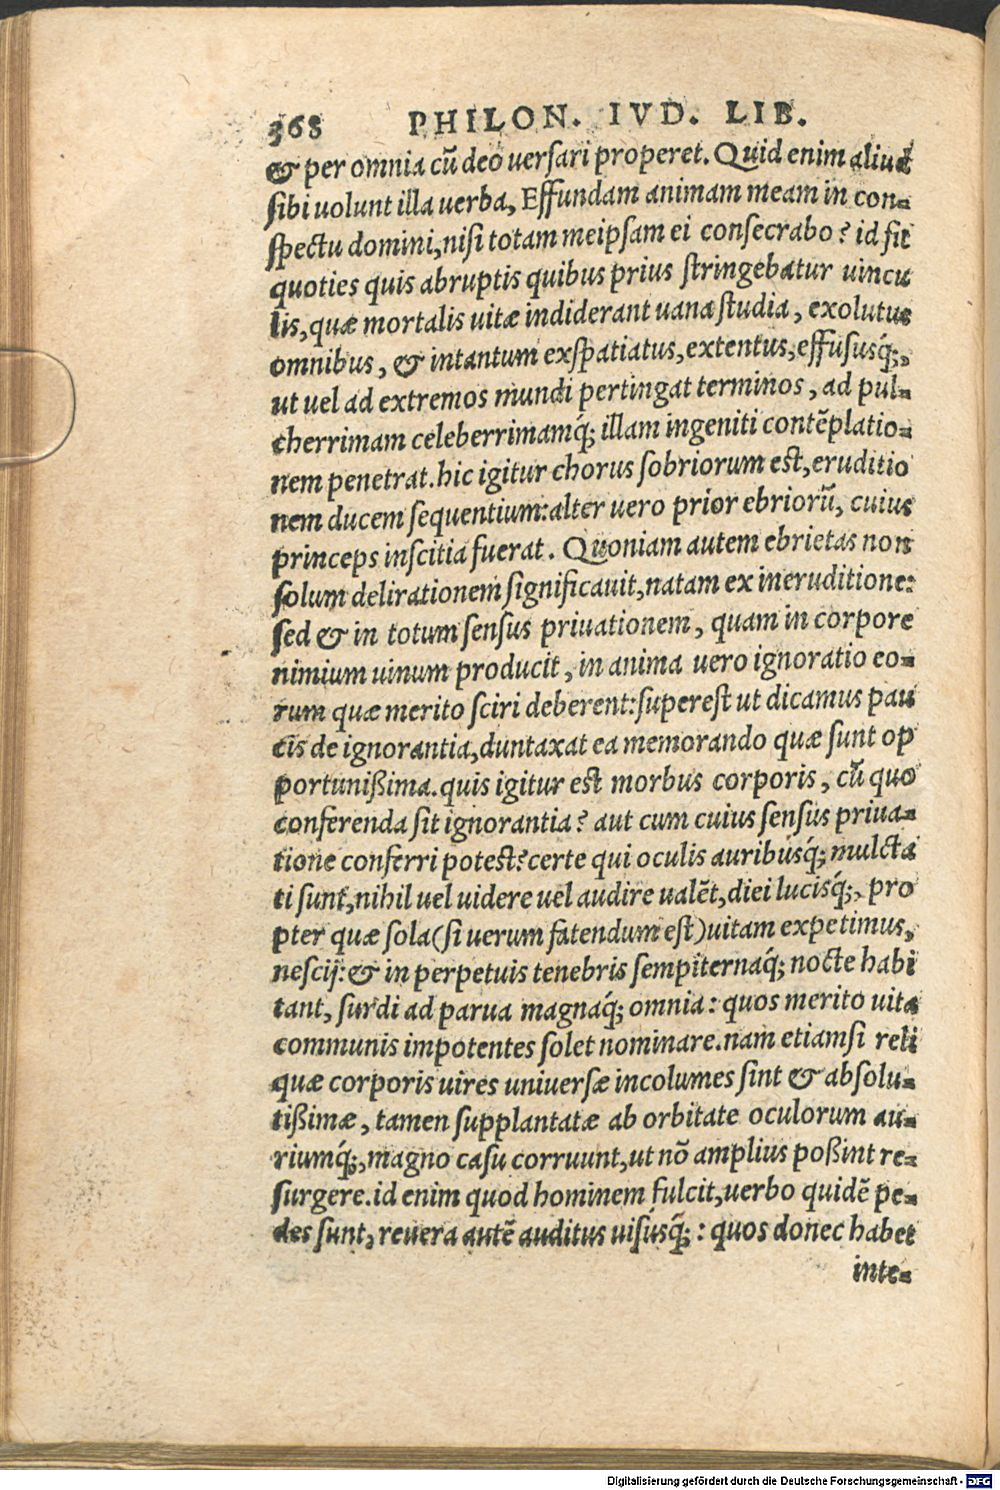 368 PHILON. IVD. LIB.
& per omnia cũ deo uersari properet. Quid enim aliud
sibi uolunt illa uerba, Effundam animam meam in con-
spectu domini, nisi totam meipsam ei consecrabo? id fit
quoties quis abruptis quibus prius stringebatur uincu
lis, quæ mortalis uitæ indiderant uana studia, exolutus
omnibus, & intantum exspatiatus, extentus, effususq́;,
ut uel ad extremos mundi pertingat terminos, ad pul-
cherrimam celeberrimamq́; illam ingeniti contẽplatio-
nem penetrat. hic igitur chorus sobriorum est, eruditio
nem ducem sequentium: alter uero prior ebriorũ, cuius
princeps inscitia fuerat. Quoniam autem ebrietas non
solum delirationem significauit, natam ex ineruditione:
sed & in totum sensus priuationem, quam in corpore
nimium uinum producit, in anima uero ignoratio eo-
rum quæ merito sciri deberent: superest ut dicamus pau
cis de ignorantia, duntaxat ea memorando quæ sunt op
portunißima. quis igitur est morbus corporis, cũ quo
conferenda sit ignorantia? aut cum cuius sensus priua-
tione conferri potest? certe qui oculis auribusq́; mulcta
ti sunt, nihil uel uidere uel audire ualẽt, diei lucisq́;, pro
pter quæ sola (si uerum fatendum est) uitam expetimus,
nescij: & in perpetuis tenebris sempiternaq́; nocte habi
tant, surdi ad parua magnaq́; omnia: quos merito uita
communis impotentes solet nominare. nam etiamsi reli
quæ corporis uires uniuersæ incolumes sint & absolu-
tißimæ, tamen supplantatæ ab orbitate oculorum au-
riumq́;, magno casu corruunt, ut nõ amplius poßint re-
surgere. id enim quod hominem fulcit, uerbo quidẽ pe-
des sunt, reuera autẽ auditus uisúsq́;: quos donec habet
inte-
Digitalisierung gefördert durch die Deutsche Forschungsgemeinschaft - DFG